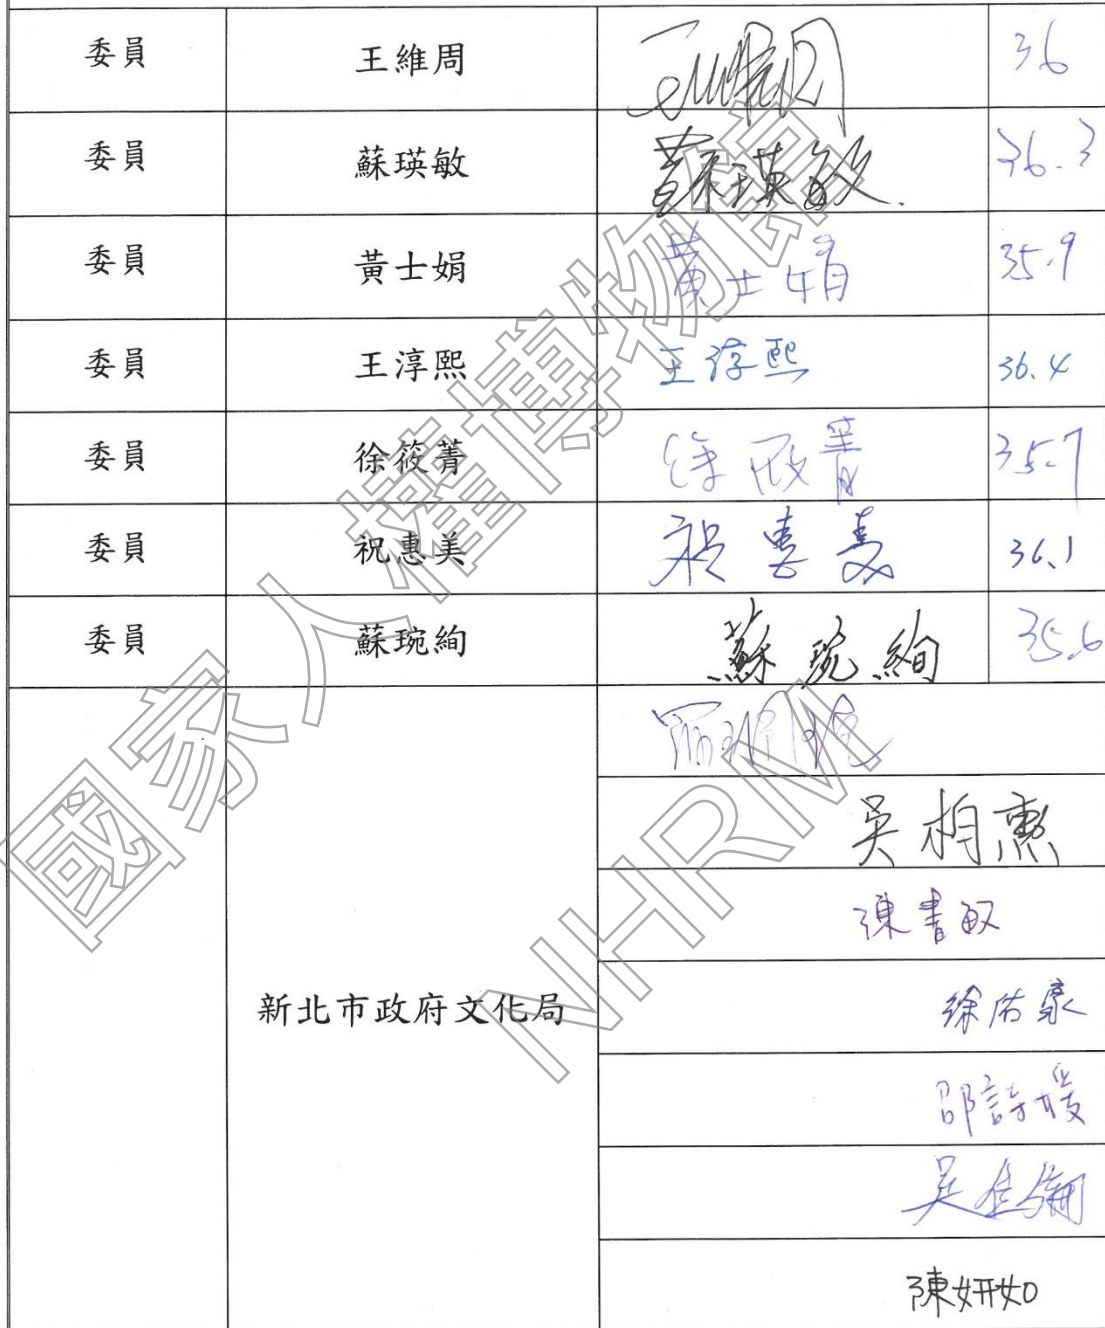 委員 王維周 王維周 36
委員 蘇瑛敏 蘇瑛敏 36.3
委員 黃士娟 黃士娟 35.9
委員 王淳熙 王淳熙 36.4
委員 徐筱菁 徐筱菁 35.7
委員 祝惠美 祝惠美 36.1
委員 蘇琬絢 蘇琬絢 35.6
新北市政府文化局
吳柏勳
陳書敏
徐佑豪
邵詩媛
陳妍如
國家人權博物館
NHRM